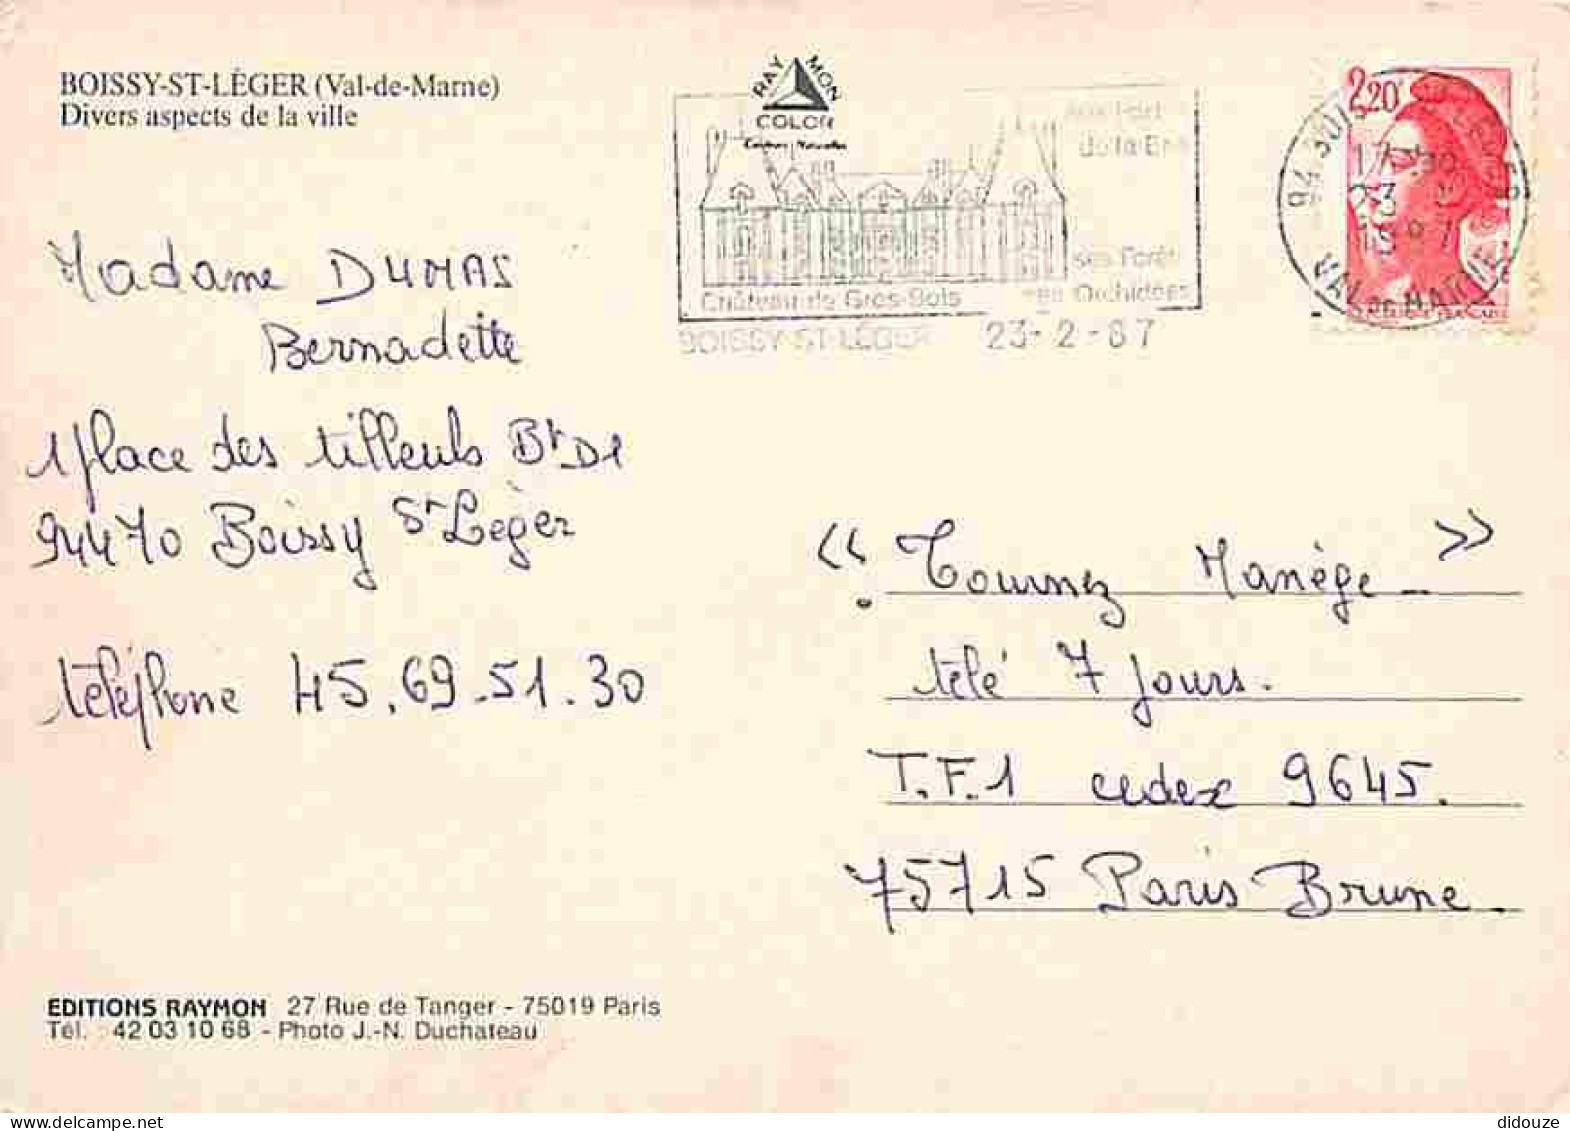 BOISSY-ST-LÉGER (Val-de-Marne)
Divers aspects de la ville
RAYMON
COLOR
Couleurs Naturelles
de la
ses Forêts
ses Orchidées
Château de Gros-Bois
BOISSY-ST-LÉGER 23-2-87
2,20
VAL DE MARNE
Madame DUMAS
Bernadette
1 place des tilleuls Bt D1
94470 Boissy St Léger
téléphone 45.69.51.30
« Tournez Manège »
télé 7 jours.
T.F.1 cedex 9645.
75715 Paris Brune.
EDITIONS RAYMON 27 Rue de Tanger - 75019 Paris
Tél. 42 03 10 68 - Photo J.-N. Duchateau
didouze